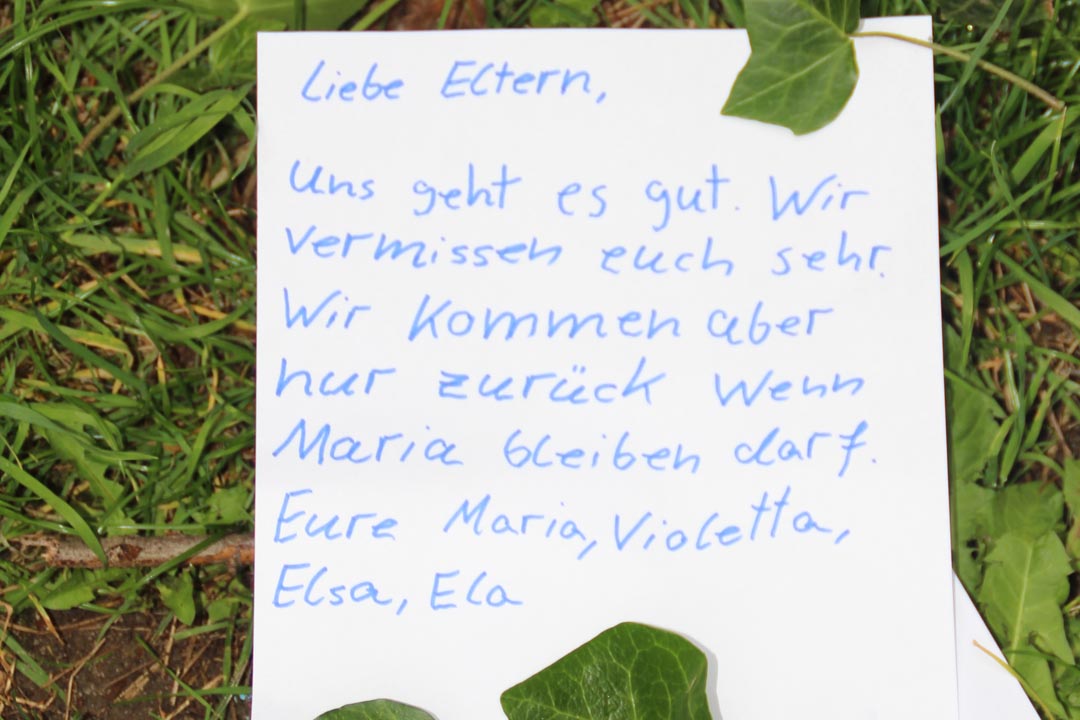 Liebe Eltern,
Uns geht es gut. Wir
vermissen euch sehr.
Wir kommen aber
nur zurück wenn
Maria bleiben darf.
Eure Maria, Violetta,
Elsa, Ela